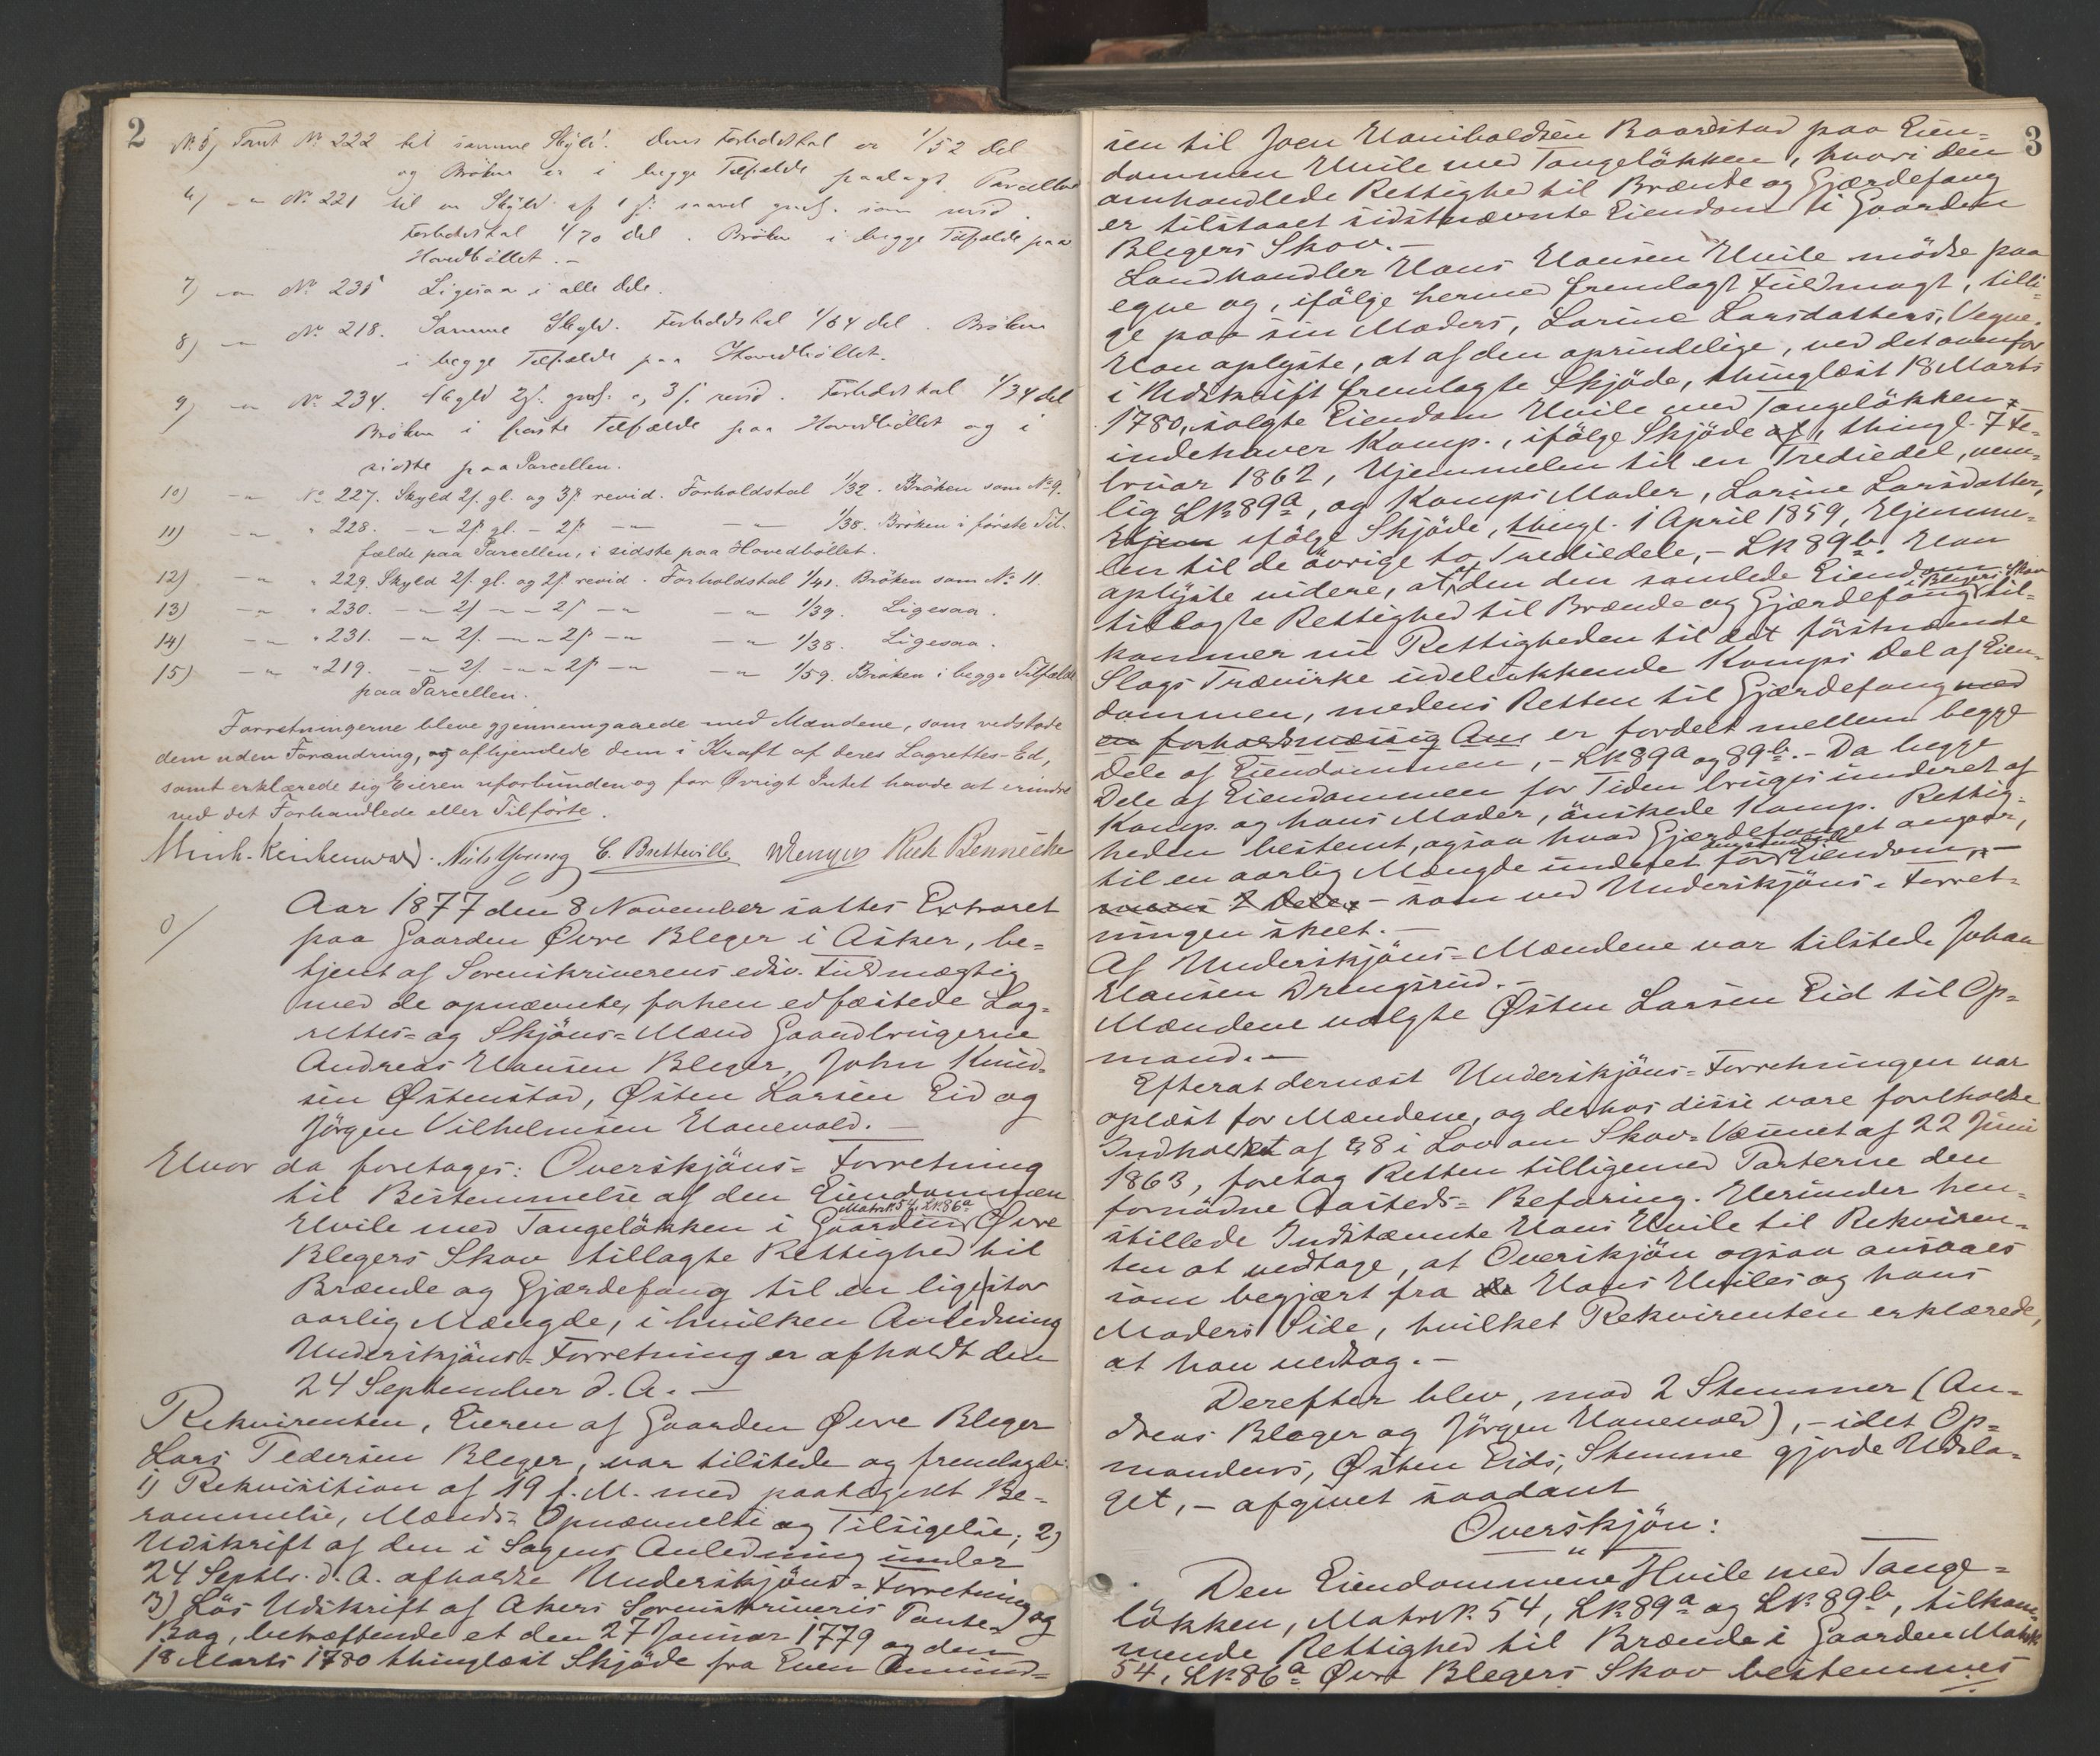 2
№ 5) Tomt № 222 til samme Skyld. Dens Forholdstal er 1/52 del
og Brøken er i begge Tilfælde paalagt Parcellen
6) -"- № 221 til en Skyld af 1 s. saavel gml. som revid.
Forholdstal 1/70 del. Brøken i begge Tilfælde paa
Hovedbøllet.-
7) -"- № 235 Ligesaa i alle dele.
8) -"- № 218. Samme Skyld. Forholdstal 1/64 del. Brøken
i begge Tilfælde paa Hovedbøllet.
9) -"- № 234. Skyld 2s. gml. og 3s. revid. Forholdstal 1/34 del
Brøken i første Tilfælde paa Hovedbøllet og i
sidste paa Parcellen.
10) -"- № 227. Skyld 2s. gl. og 3s revid. Forholdstal 1/32. Brøken som № 9.
11) -"- " 228. -"- 2s gl. - 2s -"- -"- 1/38. Brøken i første Til-
fælde paa Parcellen, i sidste paa Hovedbøllet.
12) -"- " 229. Skyld 2s. gl. og 2s. revid. Forholdstal 1/41. Brøken som № 11.
13) -"- " 230. -"- 2s -"- 2s -"- -"- 1/39. Ligesaa.
14) -"- " 231. -"- 2s. -"- 2s -"- -"- 1/38. Ligesaa.
15) -"- " 219. -"- 2s. -"- 2s -"- -"- 1/59. Brøken i begge Tilfælde
paa Parcellen.
Forretningerne bleve gjennemgaaede med Mændene, som vedstode
dem uden Forandring, og afhjemlede dem i Kraft af deres Lagrettes-Ed,
samt erklærede sig Eieren uforbunden og for Øvrigt Intet havde at erindre
ved det Forhandlede eller Tilførte.
Nils Young C. Bretteville
Aar 1877 den 8 November sattes Extraret
paa Gaarden Øvre Bleger i Asker, be-
tjent af Sorenskriverens edsv. Fuldmægtig
med de opnævnte, forhen edfæstede Lag-
rettes- og Skjöns-Mænd Gaardbrugerne
Andreas Hansen Bleger, John Knud-
sen Østenstad, Østen Larsen Eid og
Jörgen Vilhelmsen Hanevold.-
Hvor da foretages: Overskjöns-Forretning
til Bestemmelse af den Eiendommen
Hvile med Tangelökken i Gaarden Matr.№ 54, L№ 86a Øvre
Blegers Skov tillagte Rettighed til
Brænde og Gjærdefang til en lige stor
aarlig Mængde, i hvilken Anledning
Underskjöns-Forretning er afholdt den
24 September d. A.-
Rekvirenten, Eieren af Gaarden Øvre Bleger
Lars Pedersen Bleger, var tilstede og fremlagde:
1) Rekvisition af 19 f. M. med paategnet Be-
rammelse, Mænds-Opnævnelse og Tilsigelse; 2)
Udskrift af den i Sagens Anledning under
24 Septbr. d. A. afholdte Underskjöns-Forretning og
3) Løs Udskrift af Akers Sorenskriveris Pante-
Bog, betræffende et den 27 Januar 1779 og den
18 Marts 1780 thinglæst Skjöde fra Even Amund-
3
sen til Joen Haniboldsen Baardstad paa Eien-
dommen Hvile med Tangelökken, hvori den
omhandlede Rettighed til Brænde og Gjærdefang
er tilstaaet sidstnævnte Eiendom i Gaarden
Blegers Skov.-
Landhandler Hans Hansen Hvile mödte paa
egne og, ifölge hermed fremlagt Fuldmagt, tilli-
ge paa sin Moders, Larine Larsdatters, Vegne.
Han oplyste, at af den oprindelige, ved det ovenfor
i Udskrift fremlagte Skjöde, thinglæst 18 Marts
1780, solgte Eiendom Hvile med Tangelökken
indehaver Komp., ifölge Skjöde af, thingl. 7 Fe-
bruar 1862, Hjemmelen til en Trediedel, nem-
lig L№ 89a, og Komps Moder, Larine Larsdatter,
Hjem ifölge Skjöde, thingl. 1 April 1859, Hjemme-
len til de övrige to Trediedele, - L№ 89b. Han
oplyste videre, at af den den samlede Eiendom i Blegers Skov
tillagte Rettighed til Brænde og Gjærdefang til-
kommer nu Rettigheden til det förstnævnte
Slags Trævirke udelukkende Komps Del af Eien-
dommen, medens Retten til Gjærdefang med
en forholdsmæssig er fordelt mellem begge
Dele af Eiendommen, - L№ 89a og 89b.- Da begge
Dele af Eiendommen for Tiden bruges underet af
Komp. og hans Moder, önskede Komp. Rettig-
heden bestemt, ogsaa hvad Gjærdefanget angaar,
til en aarlig Mængde underet for Eiendom,-
2 Dele, - som ved Underskjöns-Forret-
ningen skeet.-
Af Underskjöns-Mændene var tilstede Johan
Hansen Drengsrud.-
Mændene valgte Østen Larsen Eid til Op-
mand.-
Efterat dernæst Underskjöns-Forretningen var
oplæst for Mændene, og derhos disse vare foreholdte
Indholdet af § 8 i Lov om Skov-Væsenet af 22 Juni
1863, foretog Retten tilligemed Parterne den
fornödne Aasteds-Befaring. Herunder hen-
stillede Indstævnte Hans Hvile til Rekviren-
ten at vedtage, at Overskjön ogsaa ansaaes
som begjært fra Hans Hviles og hans
Moders Side, hvilket Rekvirenten erklærede,
at han vedtog.-
Derefter blev, mod 2 Stemmer (An-
dreas Bleger og Jörgen Hanevold), - idet Op-
mandens, Østen Eids, Stemme gjorde Udsla-
get, - afgivet saadant
Overskjön:
Den Eiendommene Hvile med Tange-
lökken, Matr.№ 54, L№ 89a og L№ 89b, tilkom-
mende Rettighed til Brænde i Gaarden Matr№
54, L№ 86a Øvre Blegers Skov bestemmes